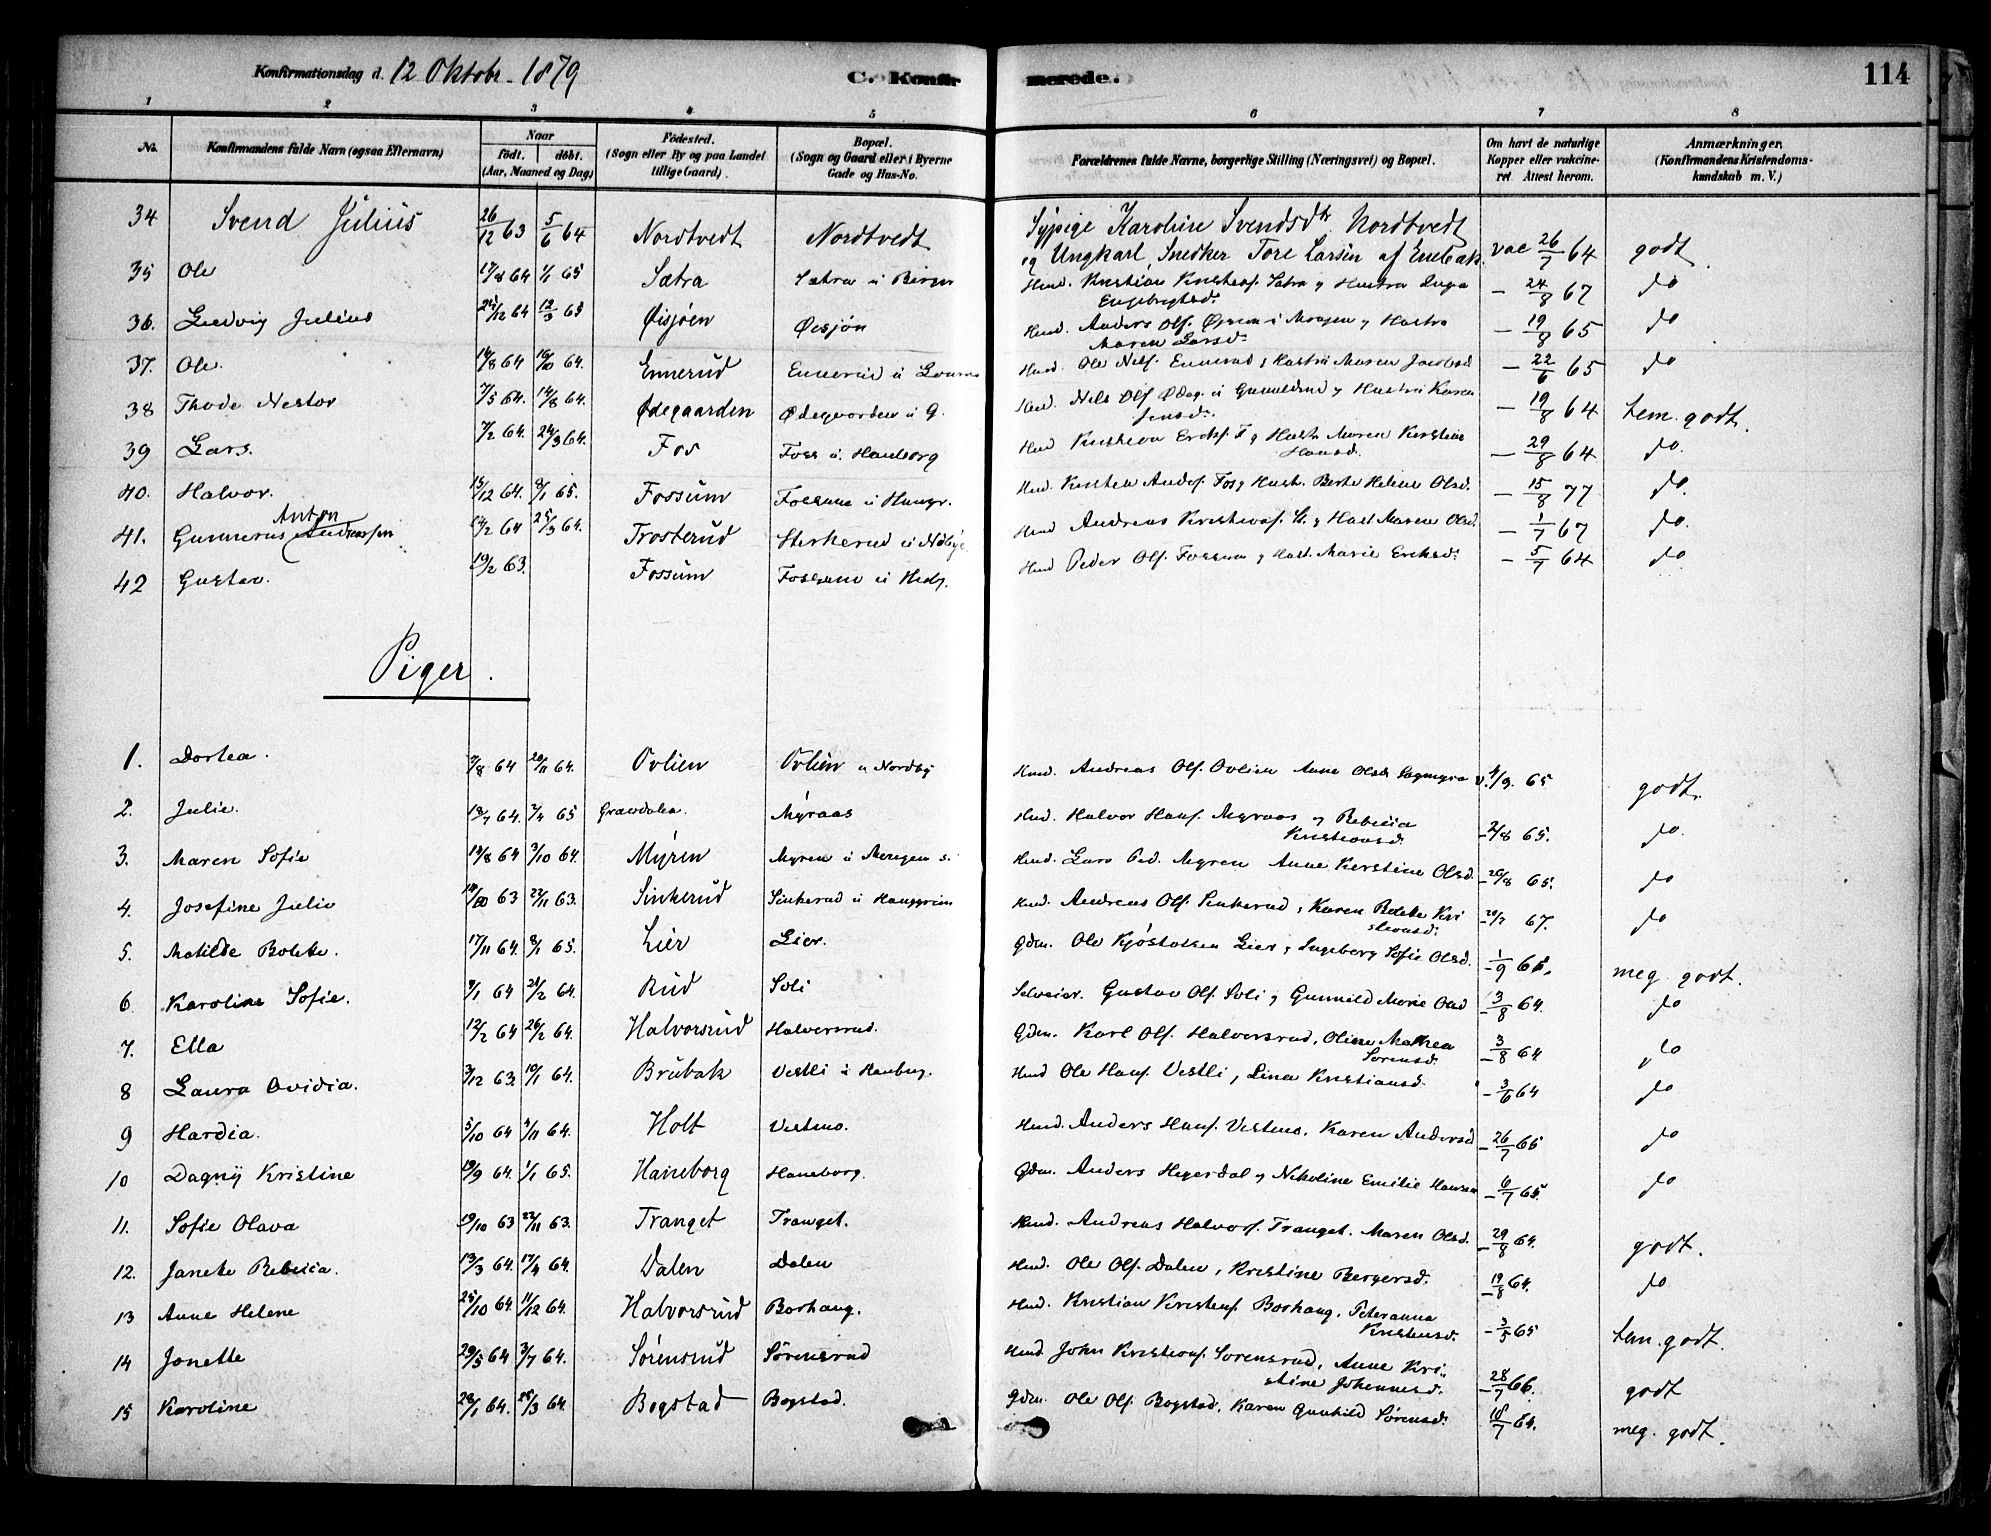 Konfirmationsdag d. 12 Oktobr. 1879 C. Konfirmerede. 114
1 2 3 4 5 6 7 8
No. Konfirmandens fulde Navn (ogsaa Efternavn) Naar født. døbt. (Aar, Maaned og Dag) Fødested. (Sogn eller By og paa Landet tillige Gaard). Bopæl. (Sogn og Gaard eller i Byerne Gade og Hus-No. Forældrenes fulde Navne, borgerlige Stilling (Næringsvei) og Bopæl. Om havt de naturlige Kopper eller vakcineret. Attest herom. Anmærkninger. (Konfirmandens Kristendomskundskab m. V.)
34 Svend Julius 26/12 63 5/6 64 Nordtvedt Nordtvedt Sypige Karoline Svendsdtr Nordtvedt
og Ungkarl, Snedker Tore Larsen af Enebak. vac 26/7 64 godt
35 Ole 17/8 64 1/1 65 Sætra Sætra u Birger Husd. Kristian Kristensf. Sætra og Hustru Inga
Engebrigtsd. – 24/8 67 do
36. Ludvig Julius 25/12 64 12/3 65 Øisjøen Øisjøn Husd. Anders Olsf. i Morgen og Hustru
Maren Larsd. – 19/8 65 do
37. Ole. 14/8 64 16/10 64. Ennerud Ennerud u Husd. Ole Nelsf. Ennerud, Hustru Maren Jacobsd – 22/6 65 do
38 Thode Nestor 7/5 64. 14/8 64. Ødegaarden Ødegaarden u G. Husd. Nils Olsf Ødeg. u og Hustru Karen
Jensd. – 19/8 64 tem. godt.
39 Lars. 7/2 64. 24/3 64. Fos Foss u Haneborg Husd Kristian Ericksf. F og Hustr. Maren Kirstine
Hansd. – 29/8 64 do.
40. Halvor. 13/12 64. 8/1 65. Fossum Fossum u Haugr. Husd. Kristen Andersf Fos og Hustr. Berte Helene Olsd. – 15/8 77 do.
Anton
41. Gunnerus Andreassen 14/2 64 25/3 64. Trosterud Sterkerud u Nebye Husd Andreas Kristiansf. St. og Hust Maren Olsd – 1/7 67 do.
42 Gustav. 19/2 63. Fossum Fossum u Husd Peder Olsf. Fossum og Hust. Marie Ericksd. – 5/7 64 do
Piger.
1. Dortea. 7/8 64 20/11 64. Ovlien Ovlien u Nordby Husd. Andreas Olsf. Ovlien Anne Olsdr Sagmyra v. 4/9. 65 godt.
2. Julie. 18/7 64. 2/4 65 Gravdalen. Myraas Husd. Halvor Hansf. Myraas og Rebecca
Kristiansd. – 2/8 65. do.
3. Maren Sofie 14/8 64 3/10 64. Myren Myren u Morgen s. Husd. Lars Ped. Myren Anne Kerstine Olsd. – 26/8 65. do
4. Josefine Julie 18/10 63 22/11 63. Sinkerud Sinkerud u Haugrim Husd. Andreas Olsf. Sinkerud, Karen Bolette Kri
stensd. – 20/7 67. do
5. Matilde Bolette. 17/11 64. 8/1 65. Lier Lier. Gdm. Ole Kjøstolsen Lier, Ingeborg Sofie Olsd. – 1/9 65. meg. godt.
6. Karoline Sofie. 9/1 64 21/2 64. Rud Soli Selveier. Gustav Olsf. Soli og Gunnild Marie Olsd – 3/8 64. do
7. Ella 12/2 64 26/2 64. Halvorsrud Halversrud. Gdm. Karl Olsf. Halversrud, Oline Mathea
Sørensd. – 3/8 64 do
8 Laura Ovidia. 3/12 63. 10/1 64. Brubak Vestli u Haneborg. Husd Ole Hansf. Vestli, Lina Kristiansd. – 3/6 64 do
9 Hardia. 5/10 64 4/11 64. Holt Vestmo. Husd. Anders Hansf. Vestmo, Karen Andersd – 26/7 65 do
10 Dagny Kristine 19/9 64. 1/1 65. Haneborg Haneborg. Gdm. Anders Heyerdal og Nikoline Emilie Hansen – 6/7 65. do
11. Sofie Olava 19/10 63 22/11 63. Tranget Tranget. Husd. Andreas Halvorsf. Tranget. Maren Olsd. – 29/8 64. godt.
12. Janette Rebecca. 13/3 64. 17/4 64. Dalen Dalen Husd. Ole Olsf. Dalen, Kristine Bergersd. – 19/8 64. do
13 Anne Helene 25/10 64. 11/12 64. Halvorsrud Borhaug. Husd. Kristian Kristensf. Borhaug, Peteranna
Kristensd. – 3/5 65 tem. godt.
14 Jonette 29/5 64 3/7 64. Sørensrud Sørensrud Husd. John Kristiansf. Sørensrud, Anne Kri-
stine Johannesd. – 28/7 66. godt
15 Karoline 28/1 64. 28/3 64. Bogstad Bogstad. Gdm. Ole Olsf. Bogstad, Karen Gunhild Sørensd. 18/7 64. meg. godt.